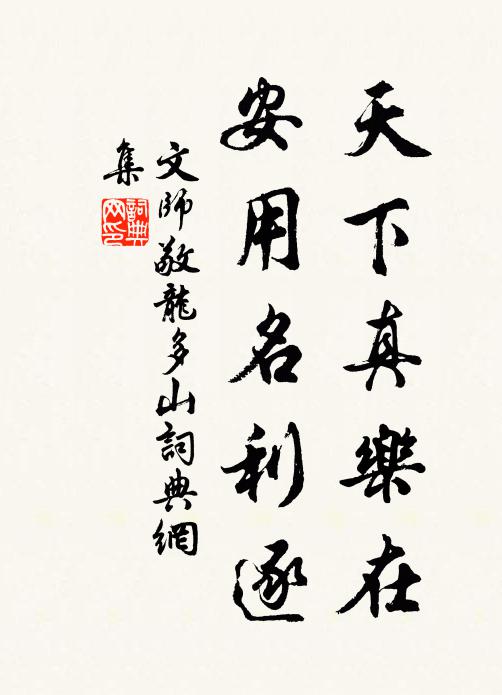 天下真樂在
安用名利逐
文師敬龍多山詞典網
集
詞典
网印